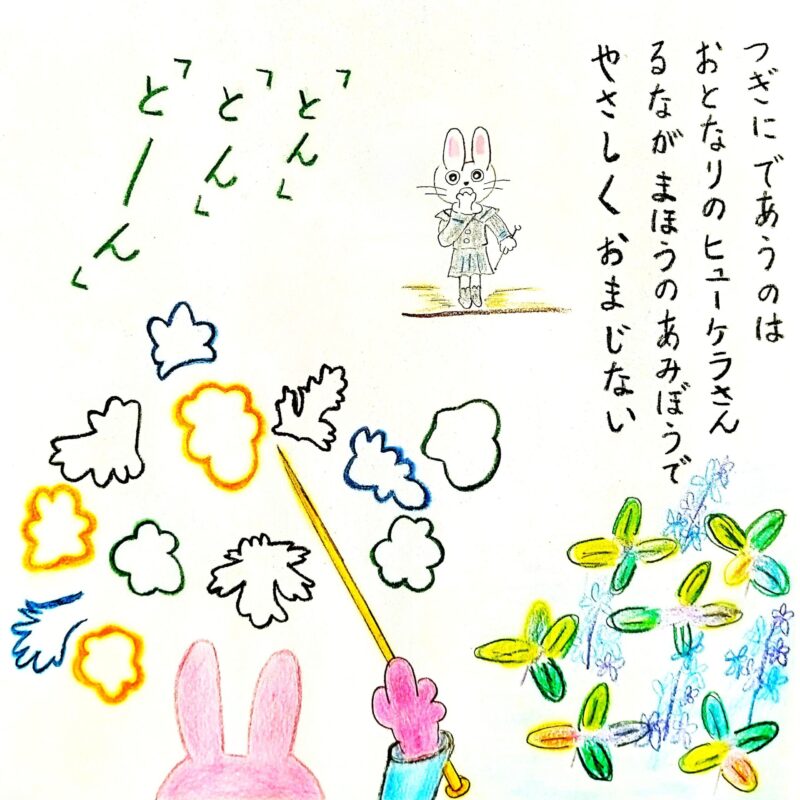 つぎに であうのは
おとなりのヒューケラさん
るなが まほうのあみぼうで
やさしく おまじない
「とん」
「とん」
「とーん」